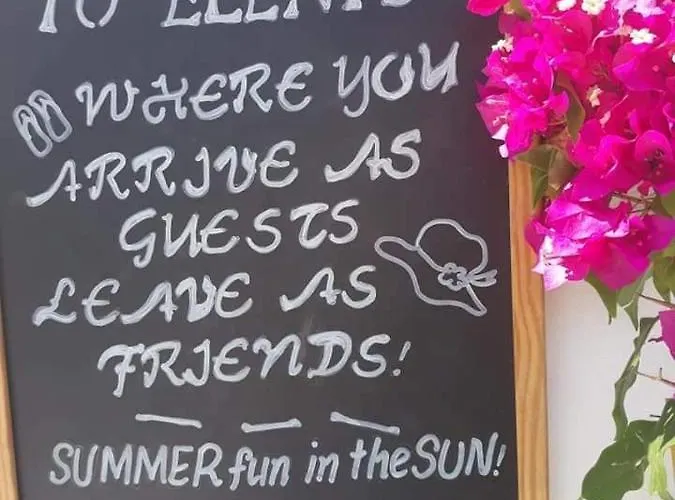 TO
WHERE YOU
ARRIVE AS
GUESTS
LEAVE AS
FRIENDS!
SUMMER fun in the SUN!